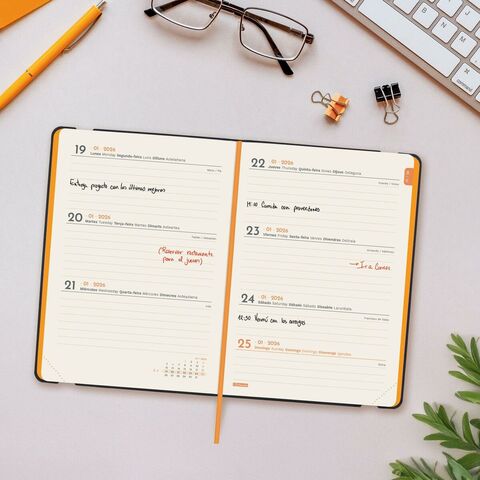 19 01 · 2026
Lunes Monday Segunda-feira Luns Dilluns Astelehena
Entrega proyecto con las últimas mejoras
20 01 · 2026
Martes Tuesday Terça-feira Martes Dimarts Asteartea
(Reservar restaurante
para el jueves)
21 01 · 2026
Miércoles Wednesday Quarta-feira Mércores Dimecres Asteazkena
22 01 · 2026
Jueves Thursday Quinta-feira Xoves Dijous Osteguna
14:10 Comida con proveedores
23 01 · 2026
Viernes Friday Sexta-feira Venres Divendres Ostirala
24 01 · 2026
Sábado Saturday Sábado Sábado Dissabte Larunbata
12:30 Vermú con los amigos
25 01 · 2026
Domingo Sunday Domingo Domingo Diumenge Igandea